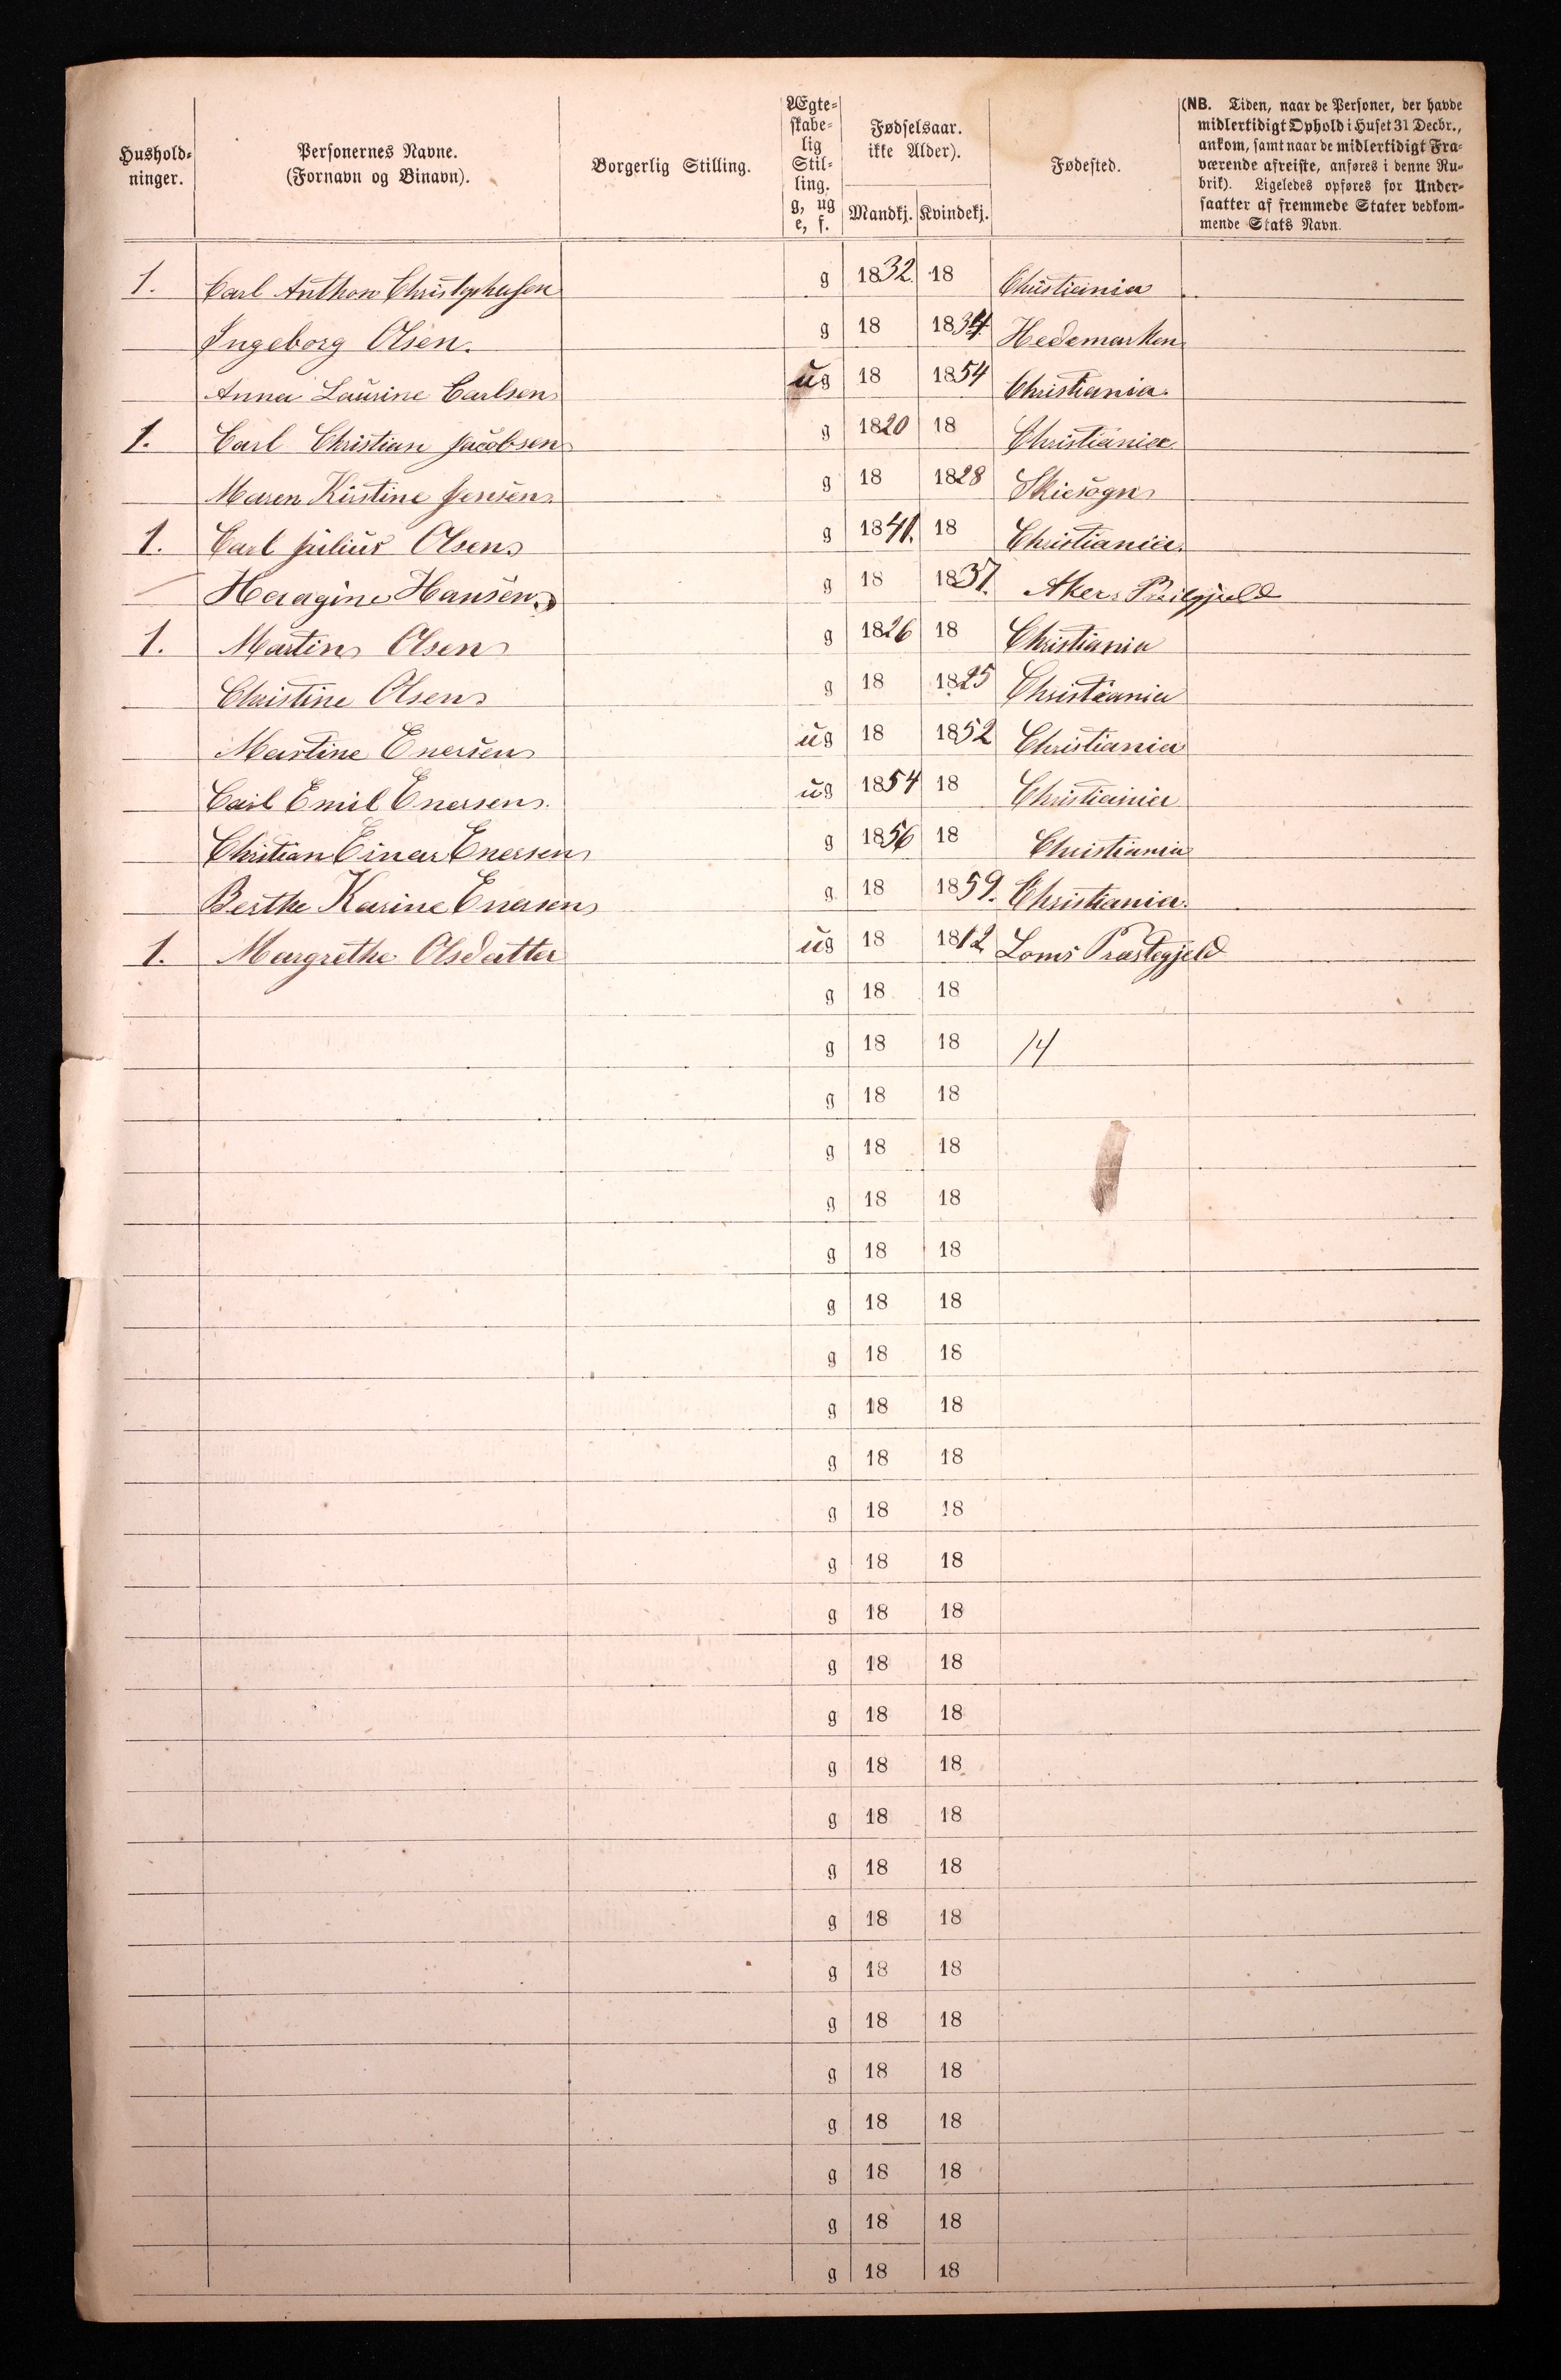 Hushold-
ninger.
Personernes Navne.
(Fornavn og Binavn).
Borgerlig Stilling.
Ægte-
skabe-
lig
Stil-
ling.
g, ug
e, f.
Fødselsaar.
ikke Alder).
Mandkj. Kvindekj.
Fødested.
(NB. Tiden, naar de Personer, der havde
midlertidigt Ophold i Huset 31 Decbr.,
ankom, samt naar de midlertidigt Fra-
værende afreiste, anføres i denne Ru-
brik). Ligeledes opføres for Under-
saatter af fremmede Stater vedkom-
mende Stats Navn.
1. Carl Anthon Christophersen g 1832. 18 Christiania
Ingeborg Olsen. g 18 1834 Hedemarken
Anna Laurine Carlsen ug 18 1854 Christiania.
1. Carl Christian Jacobsen g 1820 18 Christiania
Maren Kirstine Jensen. g 18 1828 Skiesogn
1. Carl Julius Olsen g 1841. 18 Christiania.
Haragine Hansen. g 18 1837. Akers
1. Martin Olsen g 1826 18 Christiania
Christine Olsen g 18 1825 Christiania
Martine Enersen ug 18 1852 Christiania
Carl Emil Enersen. ug 1854 18 Christiania
Chritian Einar Enersen g 1856 18 Christiania
Berthe Karine Enersen g 18 1859. Christiania.
1. Margrethe Olsdatter ug 18 1812 Loms Præstegjeld
g 18 18
g 18 18 14
g 18 18
g 18 18
g 18 18
g 18 18
g 18 18
g 18 18
g 18 18
g 18 18
g 18 18
g 18 18
g 18 18
g 18 18
g 18 18
g 18 18
g 18 18
g 18 18
g 18 18
g 18 18
g 18 18
g 18 18
g 18 18
g 18 18
g 18 18
g 18 18